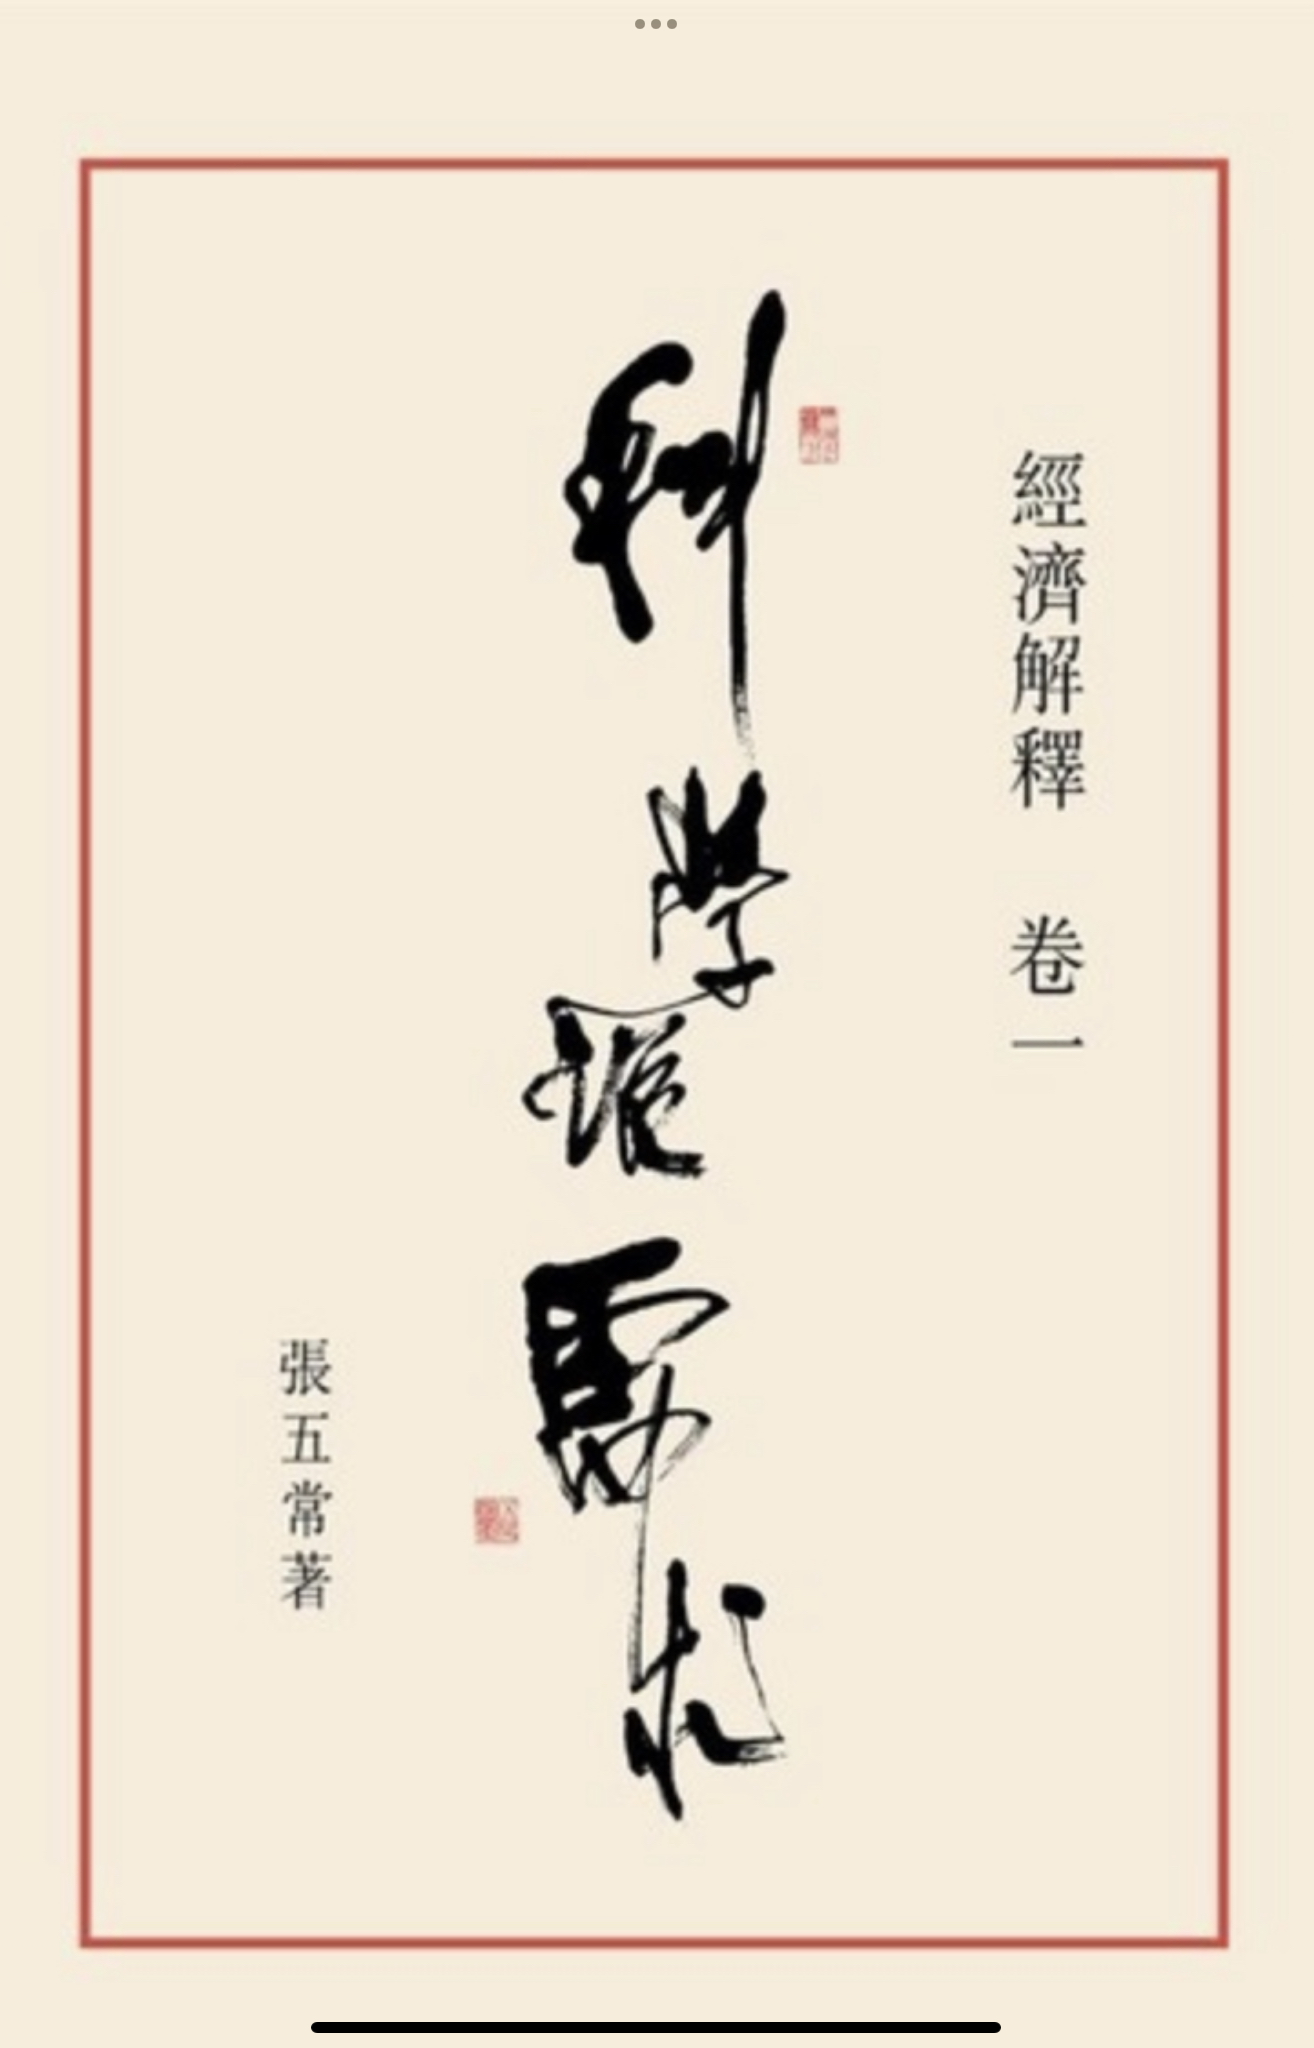 經濟解釋 卷一
科學說需求
張五常著